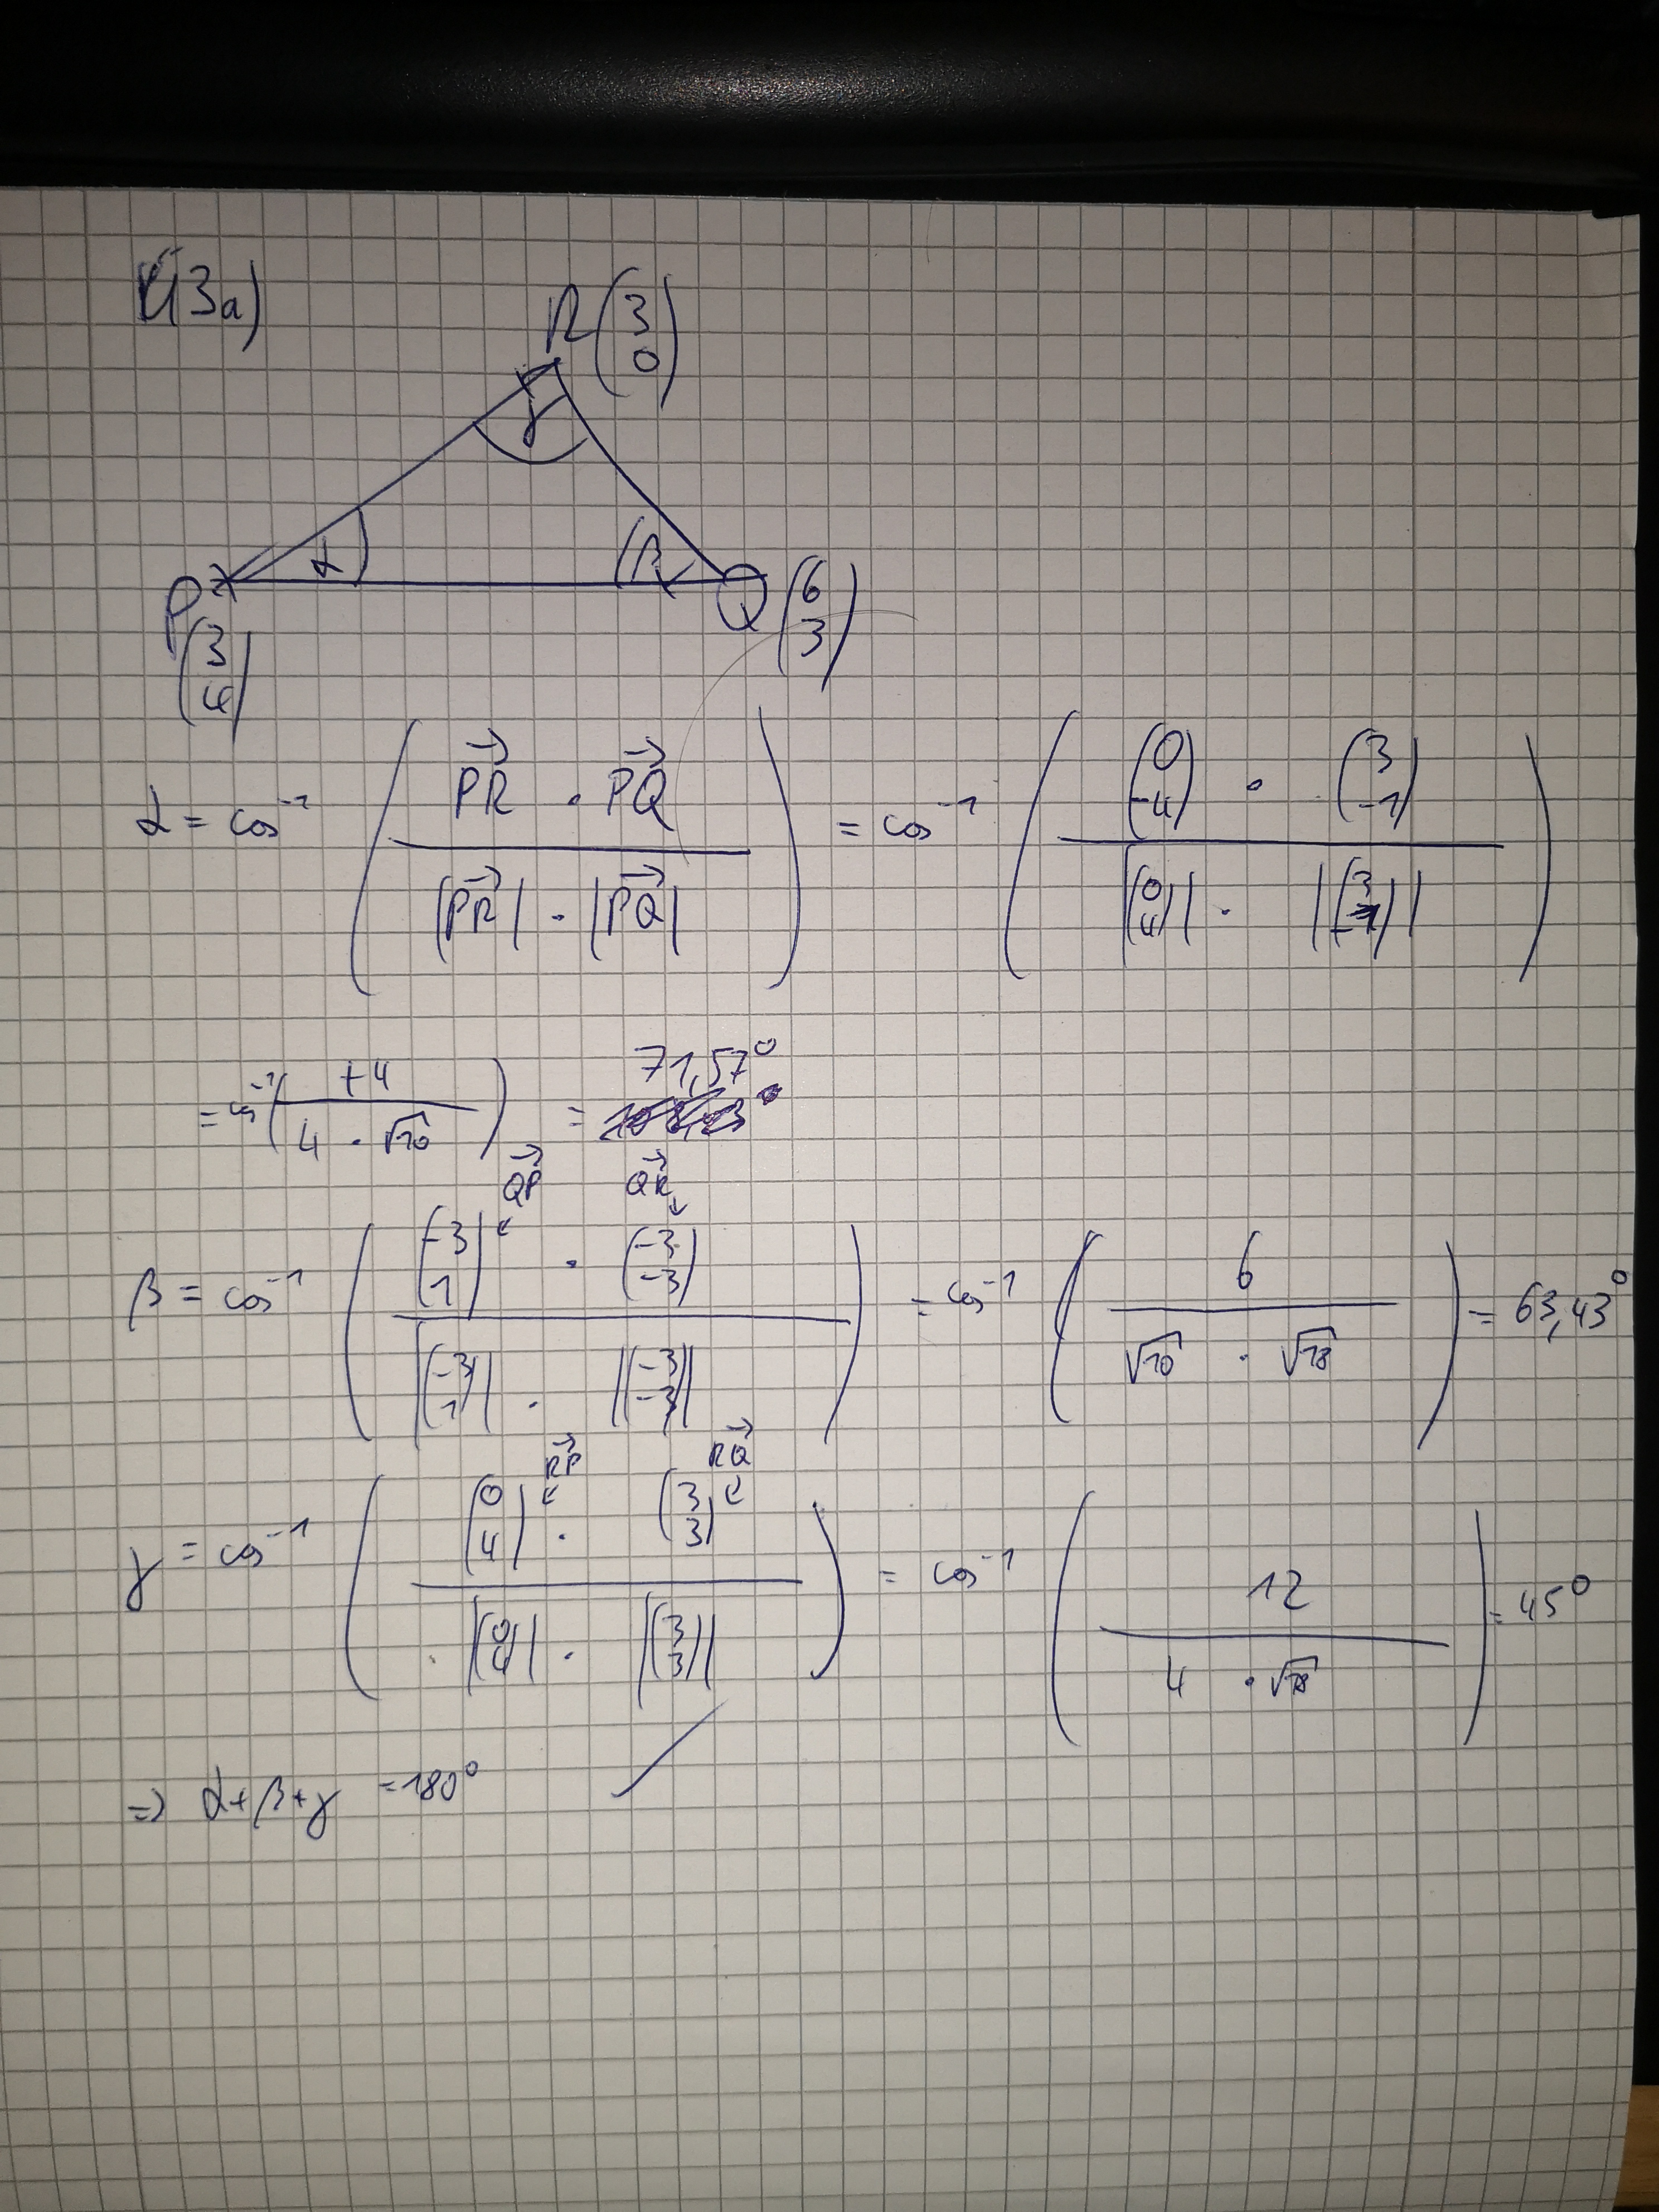 Ü3a)
R (3 0)
γ
α
β
P (3 4)
Q (6 3)
α = cos⁻¹ ( PR⃗ · PQ⃗ / |PR⃗| · |PQ⃗| ) = cos⁻¹ ( (0 -4) · (3 -1) / |(0 4)| · |(3 -1)| )
= cos⁻¹ ( +4 / 4 · √10 ) = 71,57°
QP⃗ QR⃗
β = cos⁻¹ ( (-3 1) · (-3 -3) / |(-3 1)| · |(-3 -3)| ) = cos⁻¹ ( 6 / √10 · √18 ) = 63,43°
RP⃗ RQ⃗
γ = cos⁻¹ ( (0 4) · (3 3) / |(0 4)| · |(3 3)| ) = cos⁻¹ ( 12 / 4 · √18 ) = 45°
=> α+β+γ = 180°